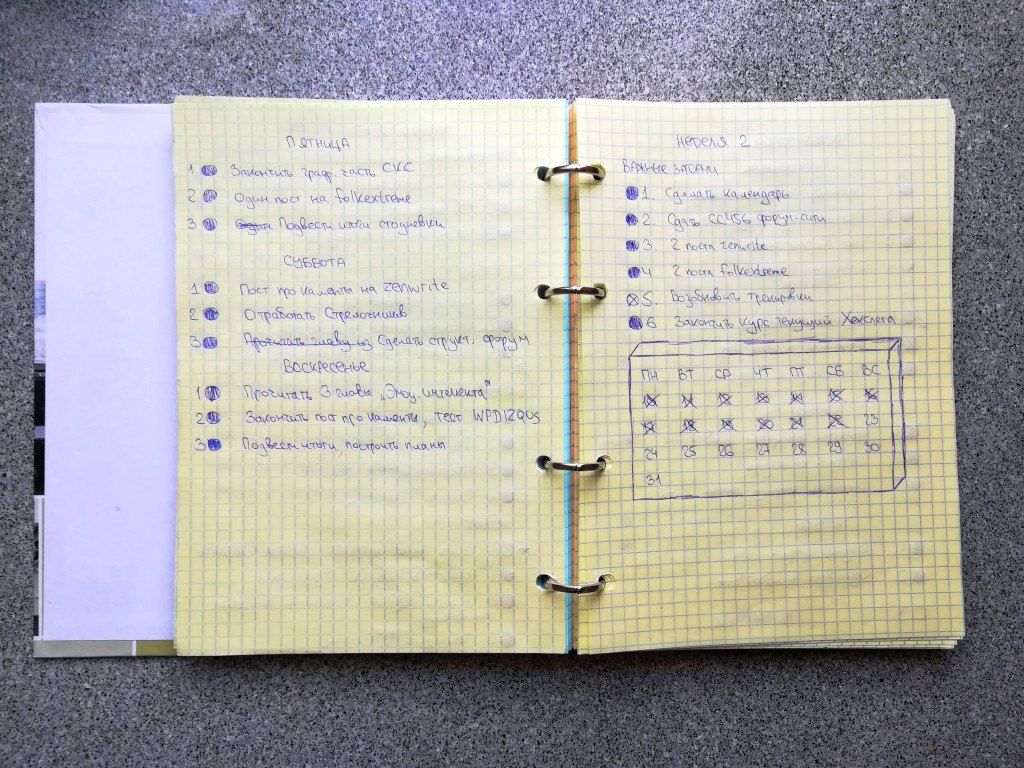 ПЯТНИЦА
1 Закончить граф. часть СКС
2 Один пост на folkextreme
3 Один Подвести итоги стодневки
СУББОТА
1 Пост про каменты на zenwrite
2 Отработать Стрелочников
3 Прочитать главу из Сделать структ. форум
ВОСКРЕСЕНЬЕ
1 Прочитать 3 главы „Эмоц. интелекта"
2 Закончить пост про каменты, тест
3 Подвести итоги, построить планы
НЕДЕЛЯ 2
ВАЖНЫЕ ЗАДАЧИ
1. Сделать календарь
2. Сдать СС456 форум-сити
3. 2 поста zenwrite
4 2 поста folkextreme
5. Возобновить тренировки
6 Закончить курс текущий Хекслета
ПН ВТ СР ЧТ ПТ СБ ВС
23
24 25 26 27 28 29 30
31